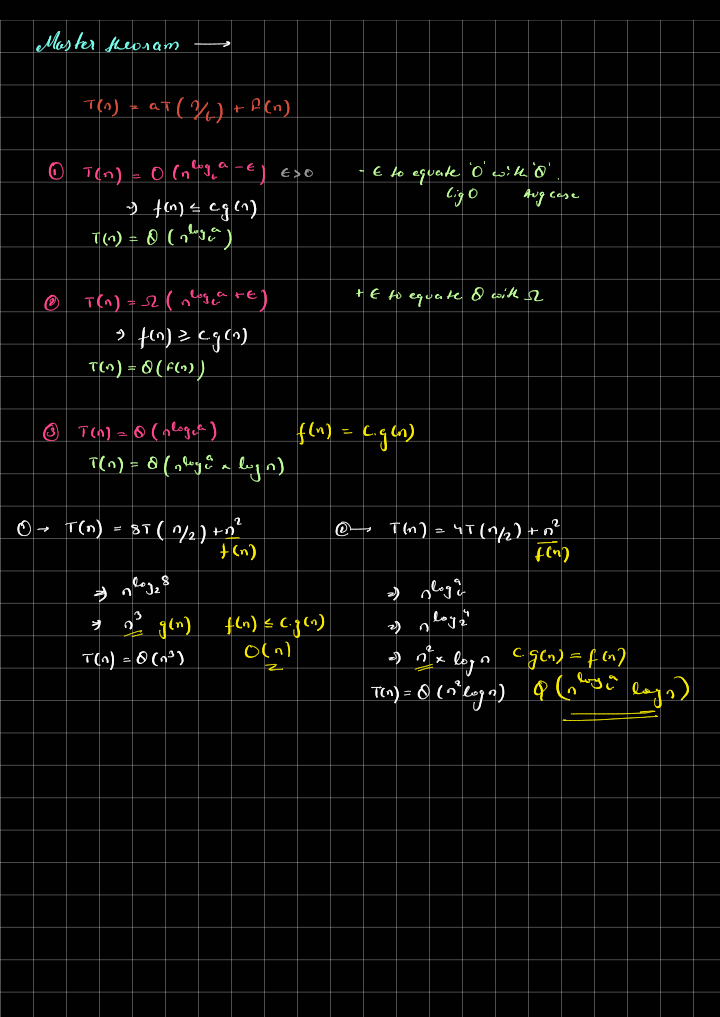 Master theoram →
T(n) = aT(n/b) + f(n)
① T(n) = O(n^log_b a - ε) ε>0
- ε to equate 'O' with 'θ'.
big O Avg case
⇒ f(n) ≤ c g(n)
T(n) = θ(n^log_b a)
② T(n) = Ω(n^log_b a + ε)
+ ε to equate θ with Ω
⇒ f(n) ≥ c g(n)
T(n) = θ(f(n))
③ T(n) = θ(n^log_b a) f(n) = c.g(n)
T(n) = θ(n^log_b a × log n)
① → T(n) = 8T(n/2) + n²
f(n)
⇒ n^log_2 8
⇒ n³ g(n) f(n) ≤ c.g(n)
T(n) = θ(n³) O(n)
② → T(n) = 4T(n/2) + n²
f(n)
⇒ n^log_b a
⇒ n^log_2 4
⇒ n² × log n c.g(n) = f(n)
T(n) = θ(n² log n) θ(n^log_b a log n)